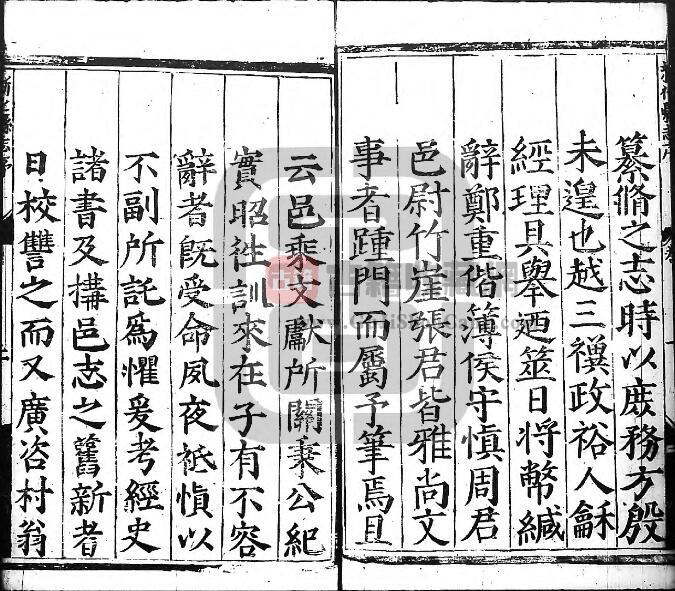 纂脩之志時以庶務方殷
未遑也越三禩政裕人龢
經理具舉廼筮日將幣緘
辭鄭重偕簿侯守慎周君
邑尉竹崖張君皆雅尚文
事者踵門而屬予筆焉且
云邑乘文獻所關秉公紀
實昭徃訓來在子有不容
辭者旣受命夙夜祗慎以
不副所託爲懼爰考經史
諸書及搆邑志之舊新者
日校讐之而又廣咨村翁